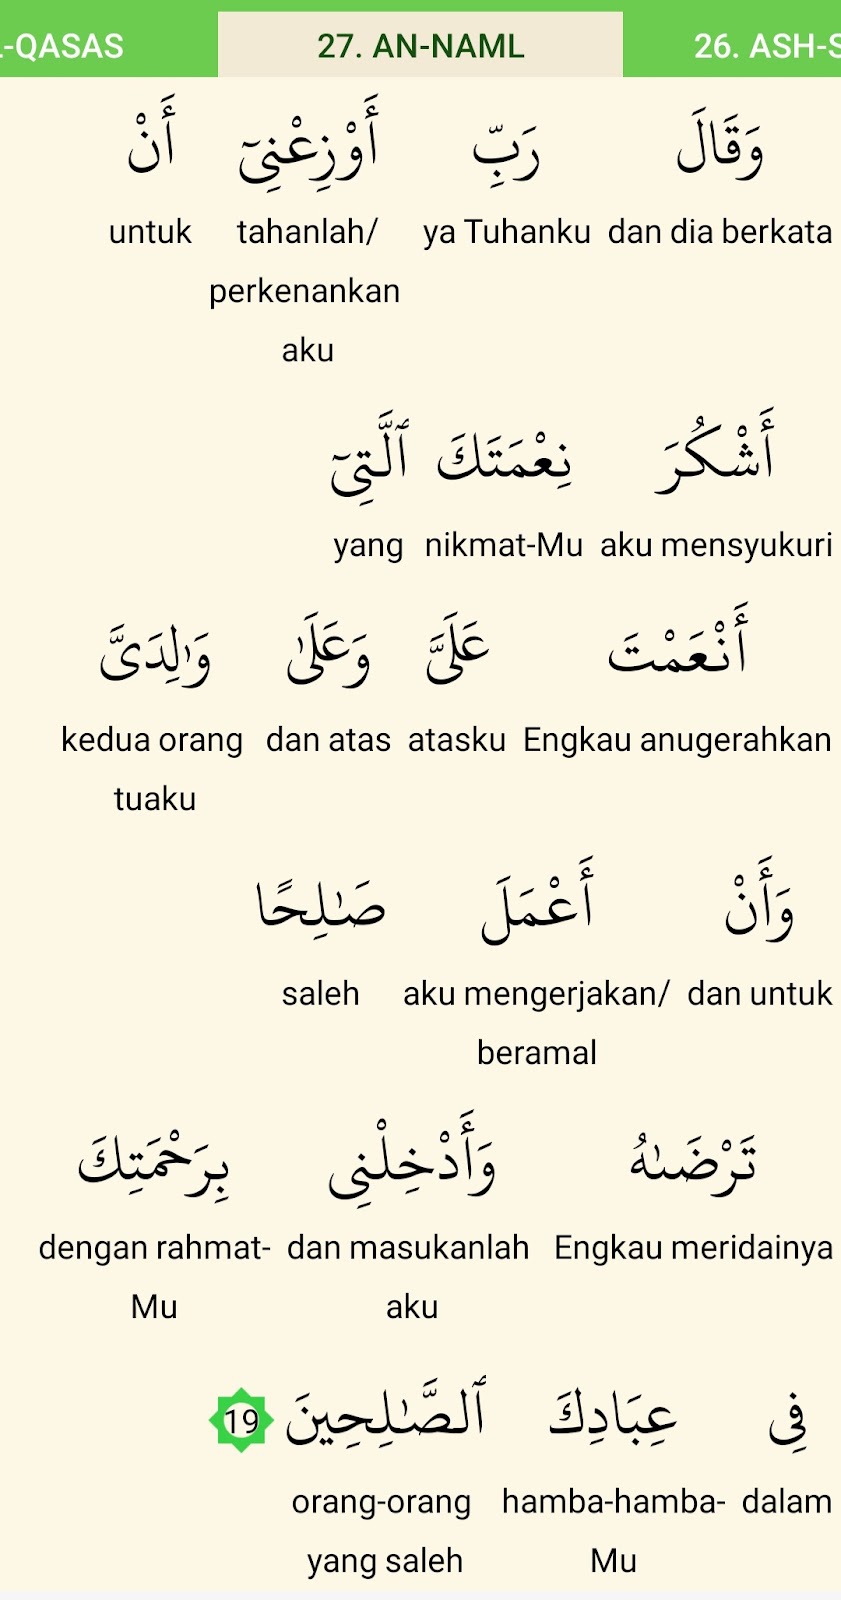 -QASAS 27. AN-NAML 26. ASH-S
وَقَالَ رَبِّ أَوْزِعْنِىٓ أَنْ
dan dia berkata ya Tuhanku tahanlah/ untuk
perkenankan
aku
أَشْكُرَ نِعْمَتَكَ ٱلَّتِىٓ
aku mensyukuri nikmat-Mu yang
أَنْعَمْتَ عَلَىَّ وَعَلَىٰ وَٰلِدَىَّ
Engkau anugerahkan atasku dan atas kedua orang
tuaku
وَأَنْ أَعْمَلَ صَـٰلِحًا
dan untuk aku mengerjakan/ saleh
beramal
تَرْضَىٰهُ وَأَدْخِلْنِى بِرَحْمَتِكَ
Engkau meridainya dan masukanlah dengan rahmat-
aku Mu
فِى عِبَادِكَ ٱلصَّـٰلِحِينَ 19
dalam hamba-hamba- orang-orang
Mu yang saleh